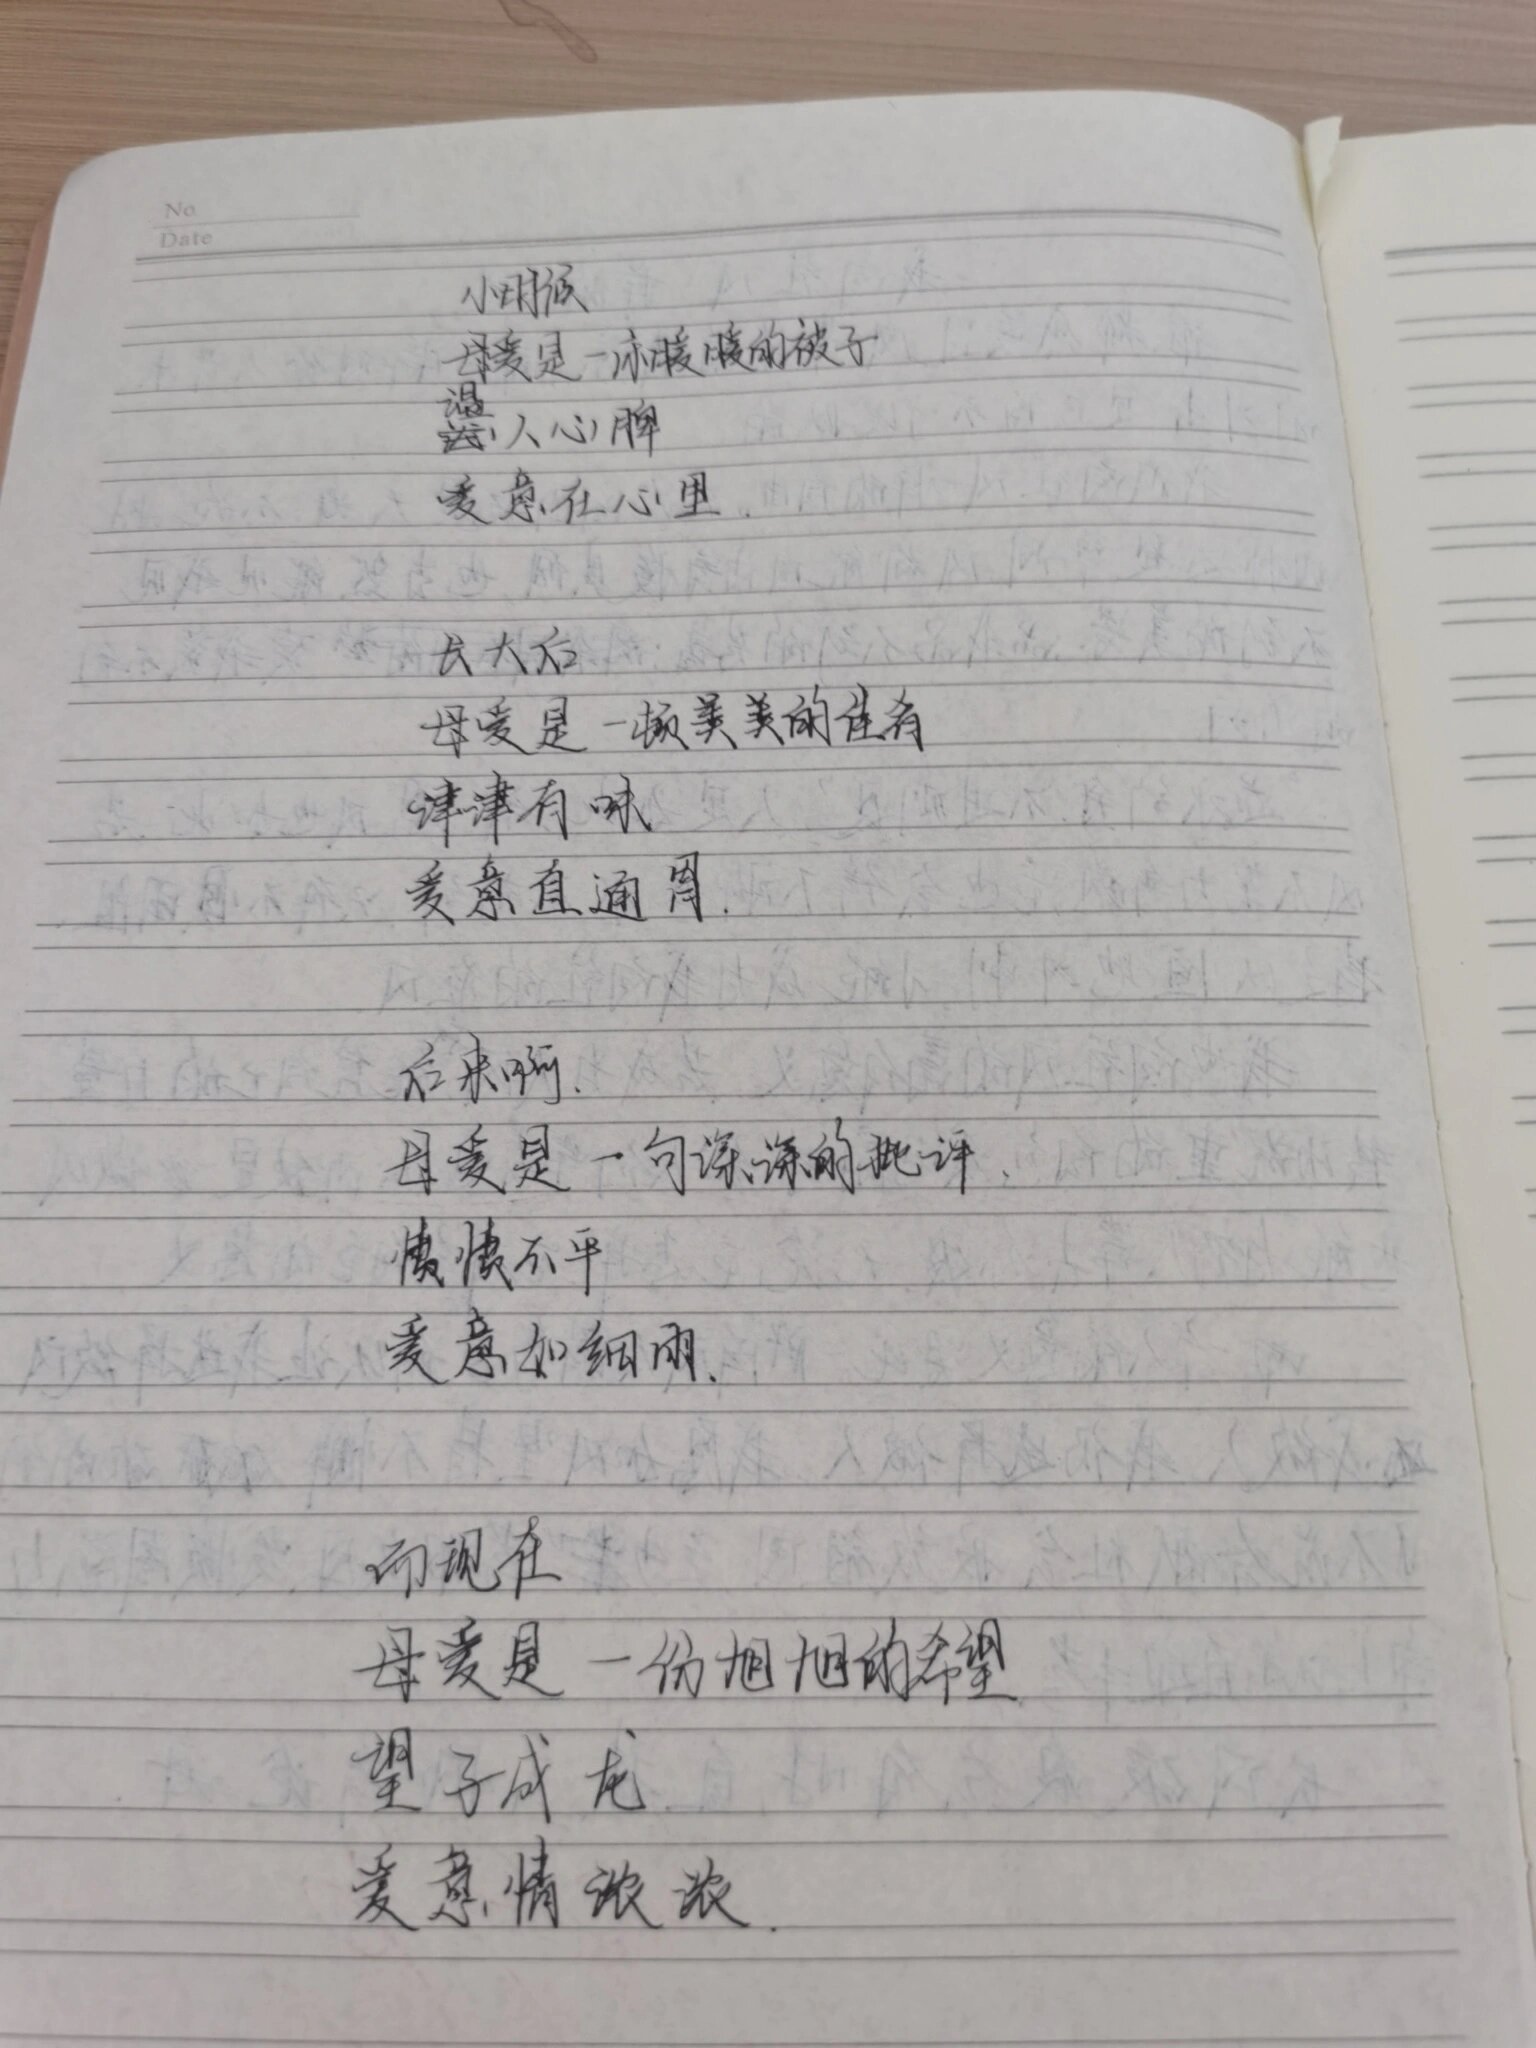 No
Date
小时候
母爱是一床暖暖的被子
温人心脾
爱意在心里.
长大后
母爱是一顿美美的佳肴
津津有味
爱意直通胃.
后来啊.
母爱是一句深深的批评.
愤愤不平
爱意如细雨.
而现在
母爱是一份旭旭的希望
望子成龙
爱意情浓浓.